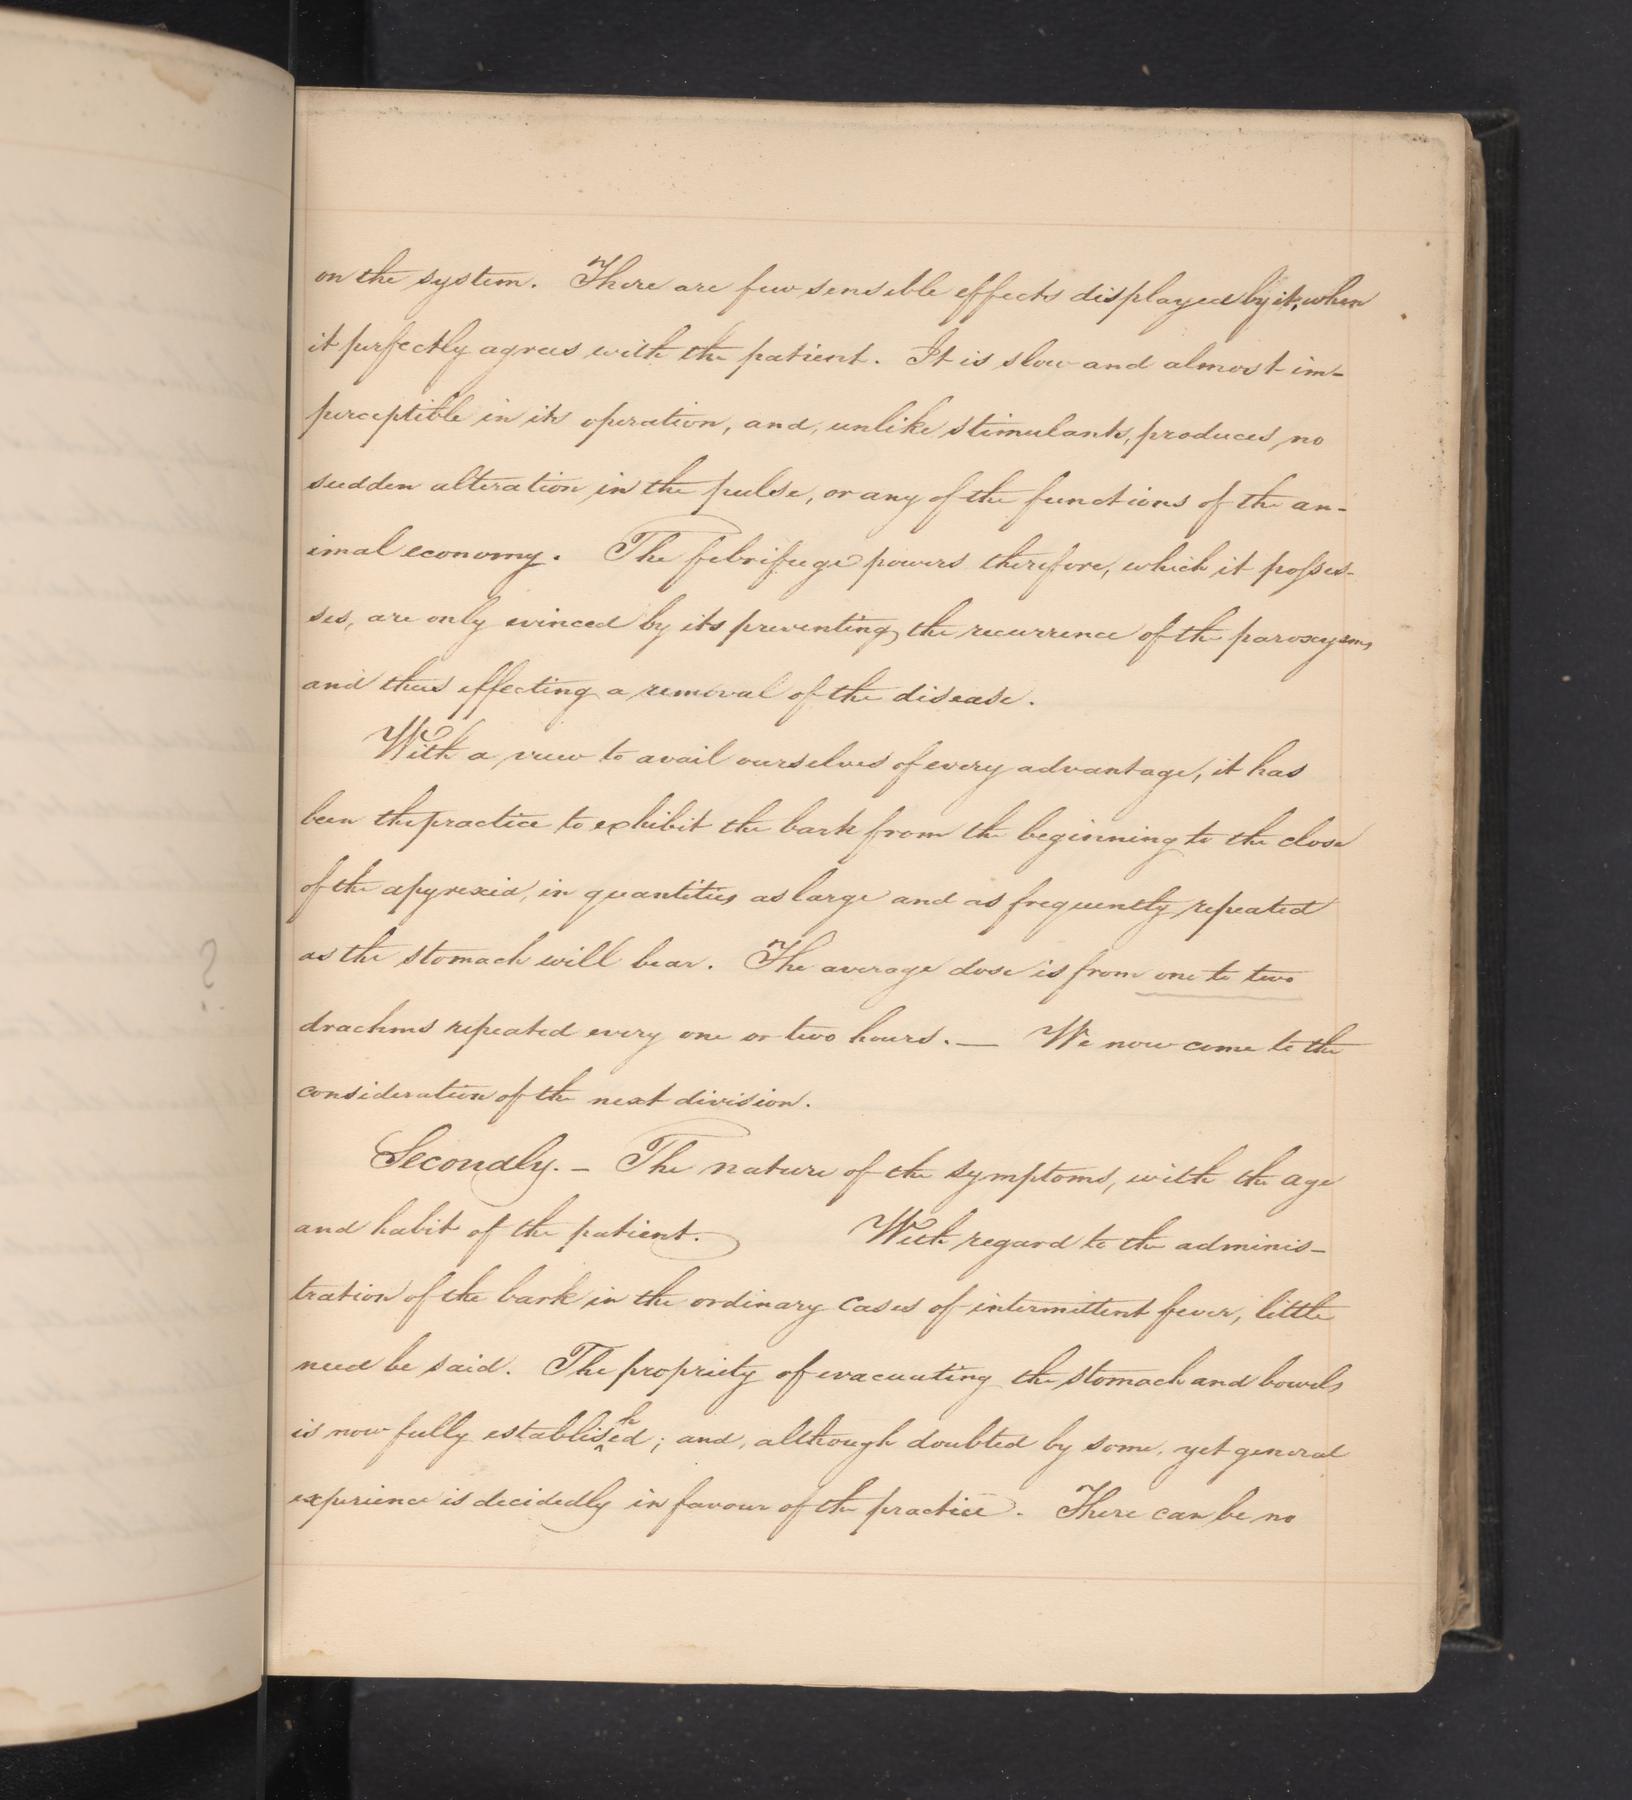 on the system. There are few sensible effects displayed by it, when
it perfectly agrees with the patient. It is slow and almost im-
perceptible in its operation, and, unlike stimulants, produces no
sudden alteration in the pulse, or any of the functions of the an-
imal economy. The febrifuge powers therefore, which it posses-
ses, are only evinced by its preventing the recurrence of the paroxysms
and thus effecting a removal of the disease.
With a view to avail ourselves of every advantage, it has
been the practice to exhibit the bark from the beginning to the close
of the apyrexia, in quantities as large and as frequently repeated
as the stomach will bear. The average dose is from one to two
drachms repeated every one or two hours. — We now come to the
consideration of the next division.
Secondly. – The nature of the symptoms, with the age
and habit of the patient. With regard to the adminis-
tration of the bark in the ordinary cases of intermittent fever, little
need be said. The propriety of evacuating the stomach and bowels
is now fully established; and, although doubted by some, yet general
experience is decidedly in favour of the practice. There can be no